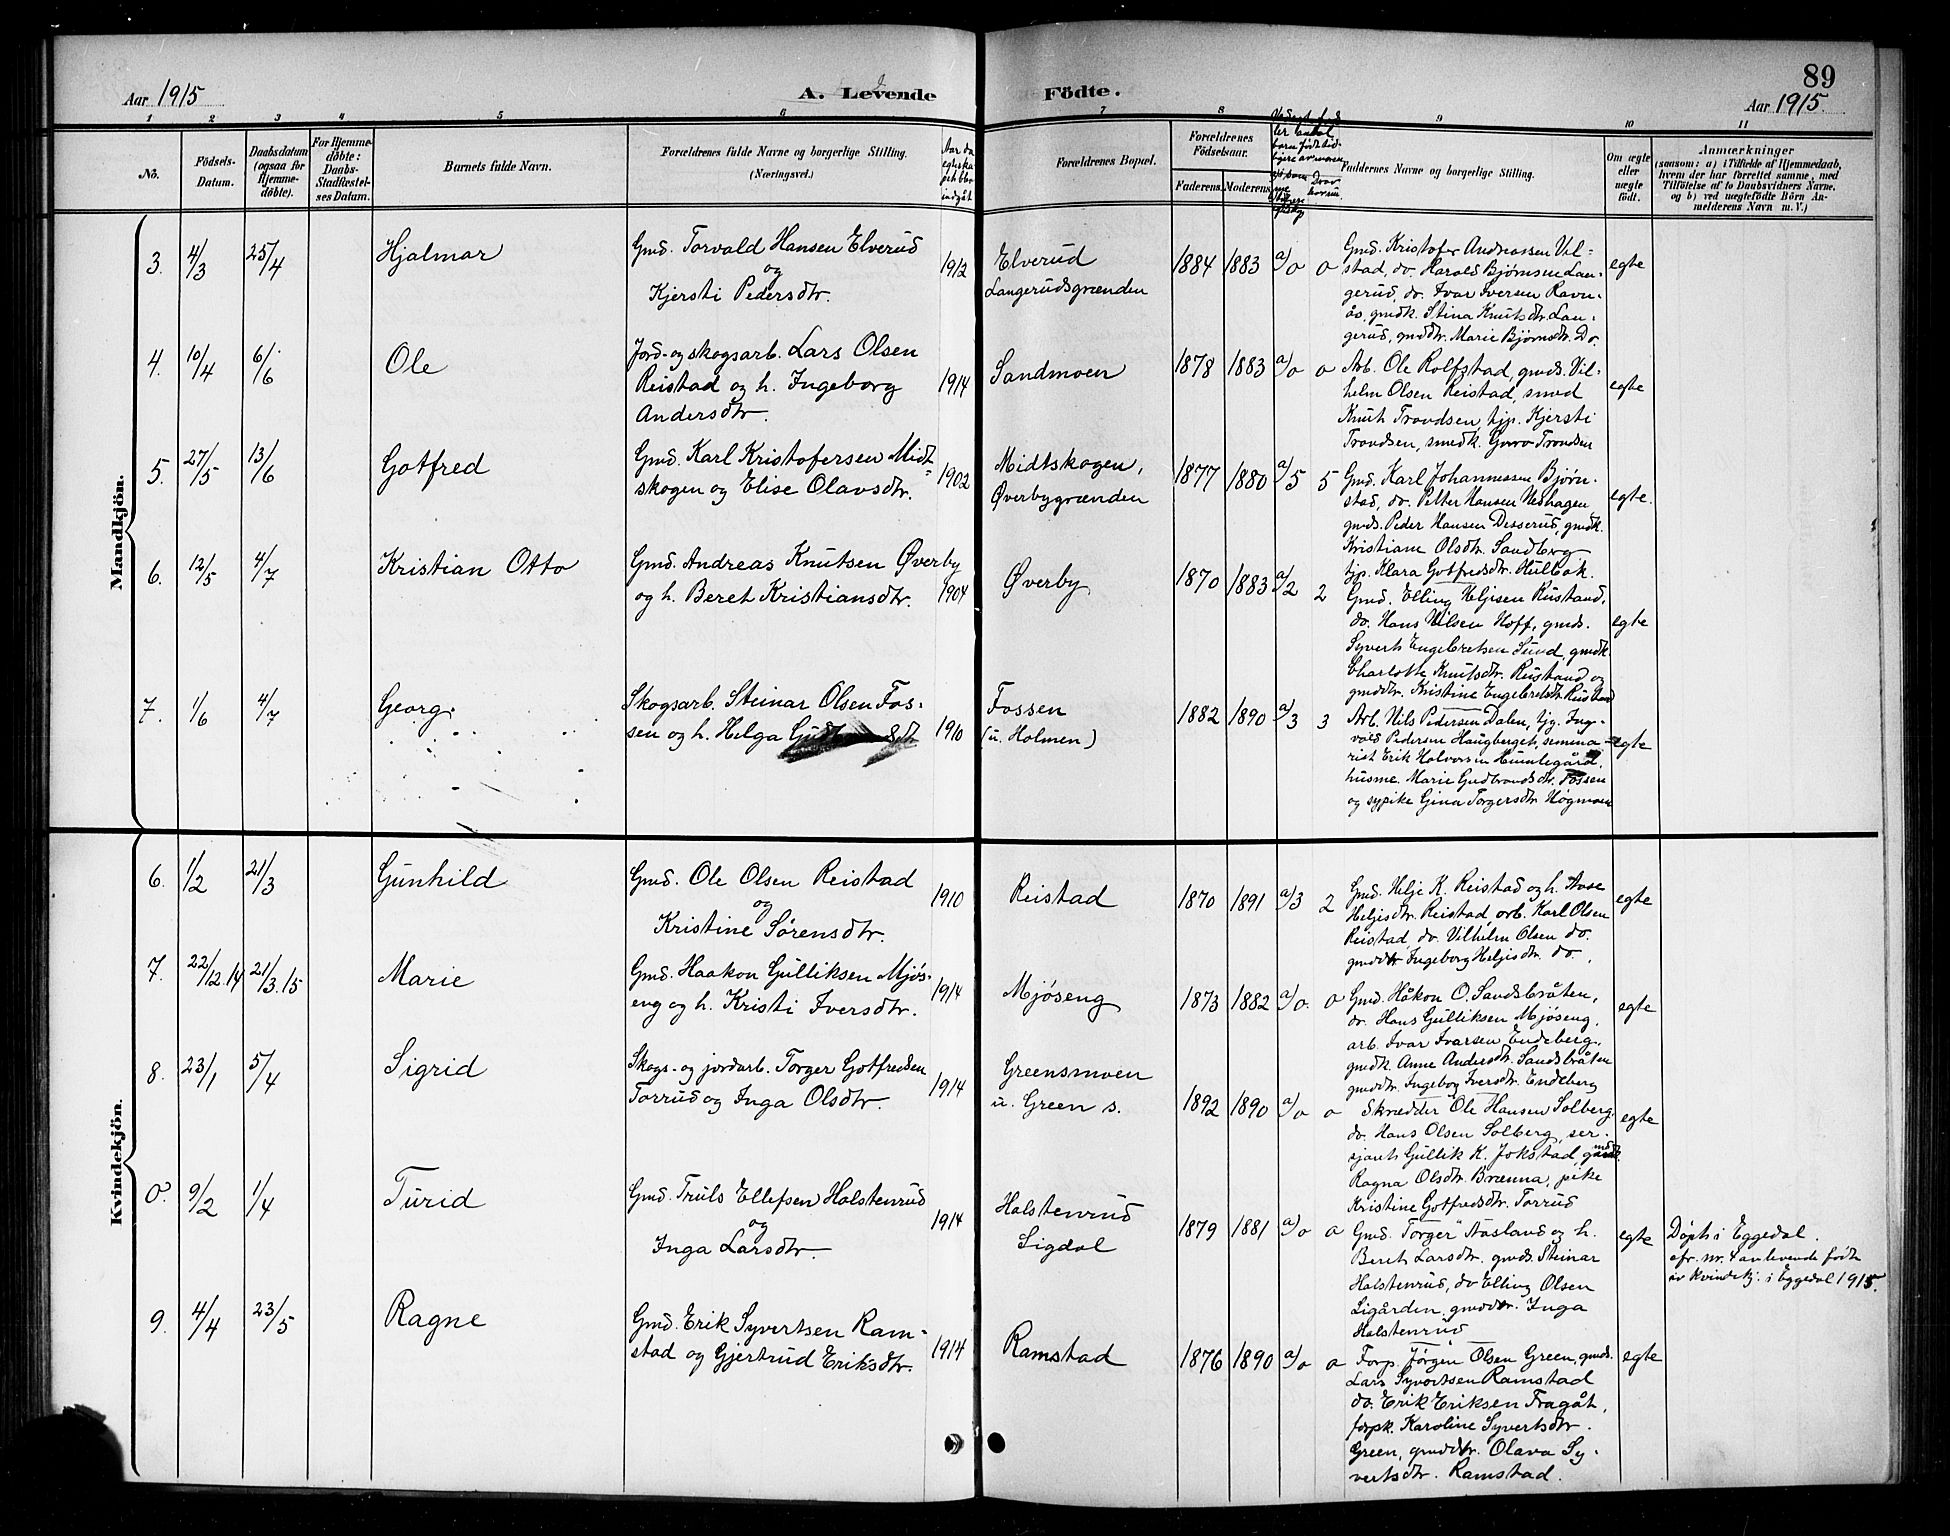 89
Aar 1915
A. Levende
Födte.
Aar 1915.
1 2 3 4 5 6 7 8 9 10 11
No.
Födsels-
Datum.
Daabsdatum
(ogsaa for
Hjemme-
döbte).
For Hjemme-
döbte:
Daabs-
Stadfæstel-
ses Datum.
Barnets fulde Navn.
Forældrenes fulde Navne og borgerlige Stilling.
(Næringsvei.)
Forældrenes Bopæl.
Forældrenes
Födselsaar.
Faderens. Moderens.
Faddernes Navne og borgerlige Stilling.
Om ægte
eller
uægte
födt.
Anmærkninger
(saasom: a) i Tilfælde af Hjemmedaab,
hvem der har forrettet samme, med
Tilföielse af to Daabsvidners Navne.
og b) ved uægtefödte Börn An-
melderens Navn m. V.)
Mandkjön.
3. 4/3 25/4 Hjalmar
Gmd. Torvald Hansen Elverud
og
Kjersti Pedersdtr.
1912
Elverud
Langerudsgrænden
1884 1883 a/0 0
Gmd. Kristofer Andreassen Vil-
stad, do. Harald Bjørnsen Lan-
gerud, do. Ivar Iversen Ravn-
ås, gmdk. Stina Knutsdtr. Lan-
gerud, gmddtr. Marie Bjørnsdtr. Do.
egte
4. 10/4 6/6 Ole
Jord- og skogsarb. Lars Olsen
Reistad og h. Ingeborg
Andersdtr.
1914
Sandmoen
1878 1883 a/0 0
Arb. Ole Rolfstad, gmds. Vil-
helm Olsen Reistad, smed
Knut Trondsen, tjp. Kjersti
Trondsen, smedk. Guro Trondsen
egte
5. 27/5 13/6 Gotfred
Gmd. Karl Kristofersen Midt-
skogen og Elise Olavsdtr.
1902
Midtskogen,
Øverbygrænden
1877 1880 a/5 5
Gmd. Karl Johannessen Bjørn-
stad, do. Petter Hansen Nedhagen
gmds. Peder Hansen Desserud, gmdk.
Kristiane Olsdtr. Sandberg
tjp. Klara Gotfredsdtr. Hulbak.
egte.
6. 12/5 4/7 Kristian Otto
Gmd. Andreas Knutsen Øverby
og h. Beret Kristiansdtr.
1904
Øverby
1870 1883 a/2 2
Gmd. Elling Heljesen Rustand,
do. Hans Nilsen Hoff, gmds.
Syvert Engebretsen Sund, gmdk
Charlotte Knutsdtr. Rustand og
gmddtr. Kristine Engebretsdtr. Rustand
egte
7. 1/6 4/7 Georg.
Skogsarb. Steinar Olsen Fos-
sen og h. Helga
1910
Fossen
(u. Holmen)
1882 1890 a/3 3
Arb. Nils Pedersen Dalen, tjg. Ing-
vald Pedersen Haugberget, semina-
rist Erik Halvorsen Humlegård,
husme. Marie Gudbrandsdtr. Fossen
og sypike Gina Torgersdtr. Høgmoen
egte
Kvindekjön.
6. 1/2 21/3 Gunhild
Gmd. Ole Olsen Reistad
og
Kristine Sørensdtr.
1910
Reistad
1870 1891 a/3 2
Gmd. Helje K. Reistad og h. Aase
Heljesdtr. Reistad, arb. Karl Olsen
Reistad, do. Vilhelm Olsen do.
gmddtr Ingeborg Heljesdtr. do.
egte
7. 22/12.14 21/3.15 Marie
Gmd. Haakon Gulliksen Mjøs-
eng og h. Kristi Iversdtr.
1914
Mjøseng
1873 1882 a/0. 0
Gmd. Håkon O. Sandsbråten,
do. Hans Gulliksen Mjøseng,
arb. Ivar Ivarsen Endeberg,
gmdk. Anne Andersdtr. Sandsbråten
gmddtr. Ingeborg Iversdtr. Endeberg
egte
8. 23/1 5/4 Sigrid
Skogs- og jordarb. Torger Gotfredsen
Torrud og Inga Olsdtr.
1914
Greensmoen
u. Green s.
1892 1890 a/0 0
Skrædder Ole Hansen Solberg,
do. Hans Olsen Solberg, ser-
sjant Gullik K. Jokstad, gmdk.
Ragna Olsdtr. Brænna, pike
Kristine Gotfredsdtr. Torrud
egte
0. 9/2 1/4 Turid
Gmd. Truls Ellefsen Halstenrud
og
Inga Larsdtr.
1914
Halstenrud
Sigdal
1879 1881 a/0 0
Gmd. Torger Aasland og h.
Beret Larsdtr. gmds. Steinar
Halstenrud, do Elling Olsen
Ligården, gmddtr. Inga
Halstenrud
egte
Døpt i Eggedal.
cfr. nr. 4 av levende fødte
av kvindekj. i Eggedal 1915.
9. 4/4 23/5 Ragne
Gmd. Erik Syvertsen Ram-
stad og Gjertrud Eriksdtr.
1914
Ramstad
1876 1890 a/0 0
Forp. Jørgen Olsen Green, gmds.
Lars Syvertsen Ramstad
do. Erik Eriksen Fragåt,
forpk. Karoline Syvertsdtr.
Green, gmddtr. Olava Sy-
vertsdtr. Ramstad.
egte